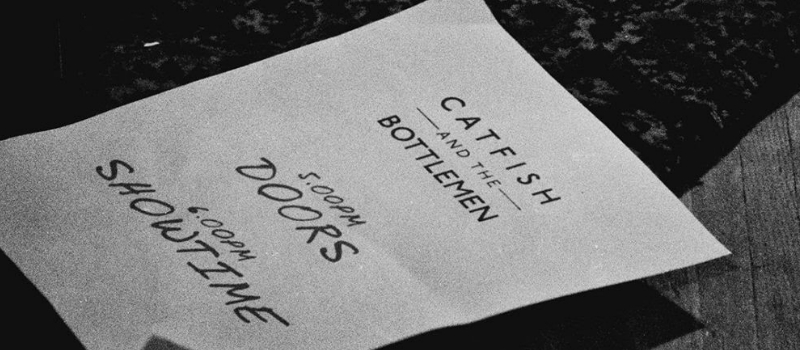 CATFISH
AND THE
BOTTLEMEN
5.00PM
DOORS
6.00PM
SHOWTIME